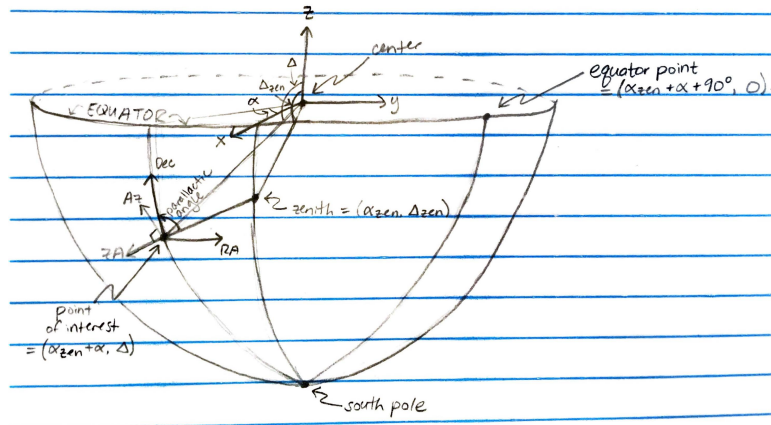 z
center
Δ
Δzen
α
equator point
= (αzen + α + 90°, 0)
EQUATOR
y
x
Dec
Az
parallactic
angle
zenith = (αzen, Δzen)
ZA
RA
point
of interest
= (αzen+α, Δ)
south pole